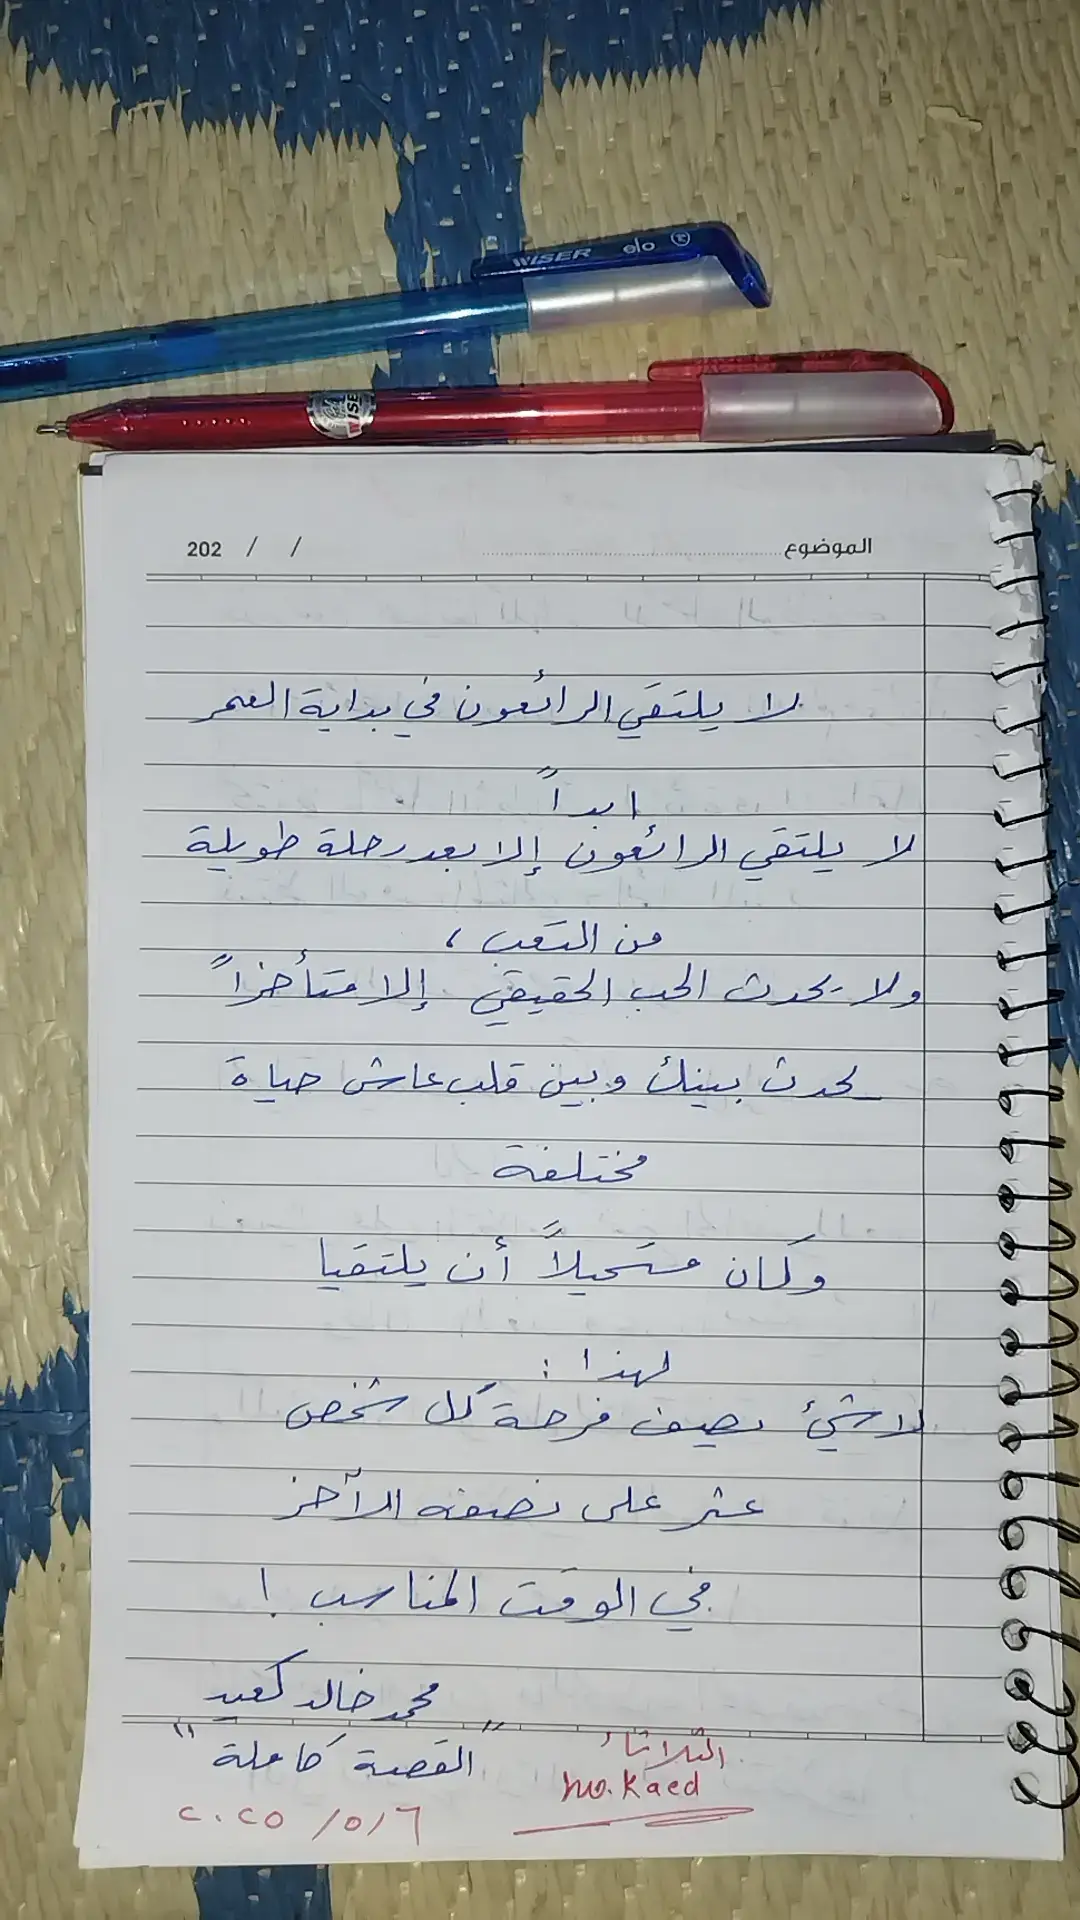 WISER elo
WISE
الموضوع ........................ 202 / /
لا يلتقي الرائعون في بداية العمر
ابداً
لا يلتقي الرائعون إلا بعد رحلة طويلة
من التعب ،
ولا يحدث الحب الحقيقي إلا متأخراً
يحدث بينك وبين قلب عاش حياة
مختلفة
وكان مستحيلاً أن يلتقيا
لهذا :
لا شيئ يصف فرحة كل شخص
عثر على نصفه الآخر
في الوقت المناسب !
محمد خالد كعيد
"القصة كاملة"
الثلاثاء
mo.Kaed
٢٠٢٥ /٥/٦